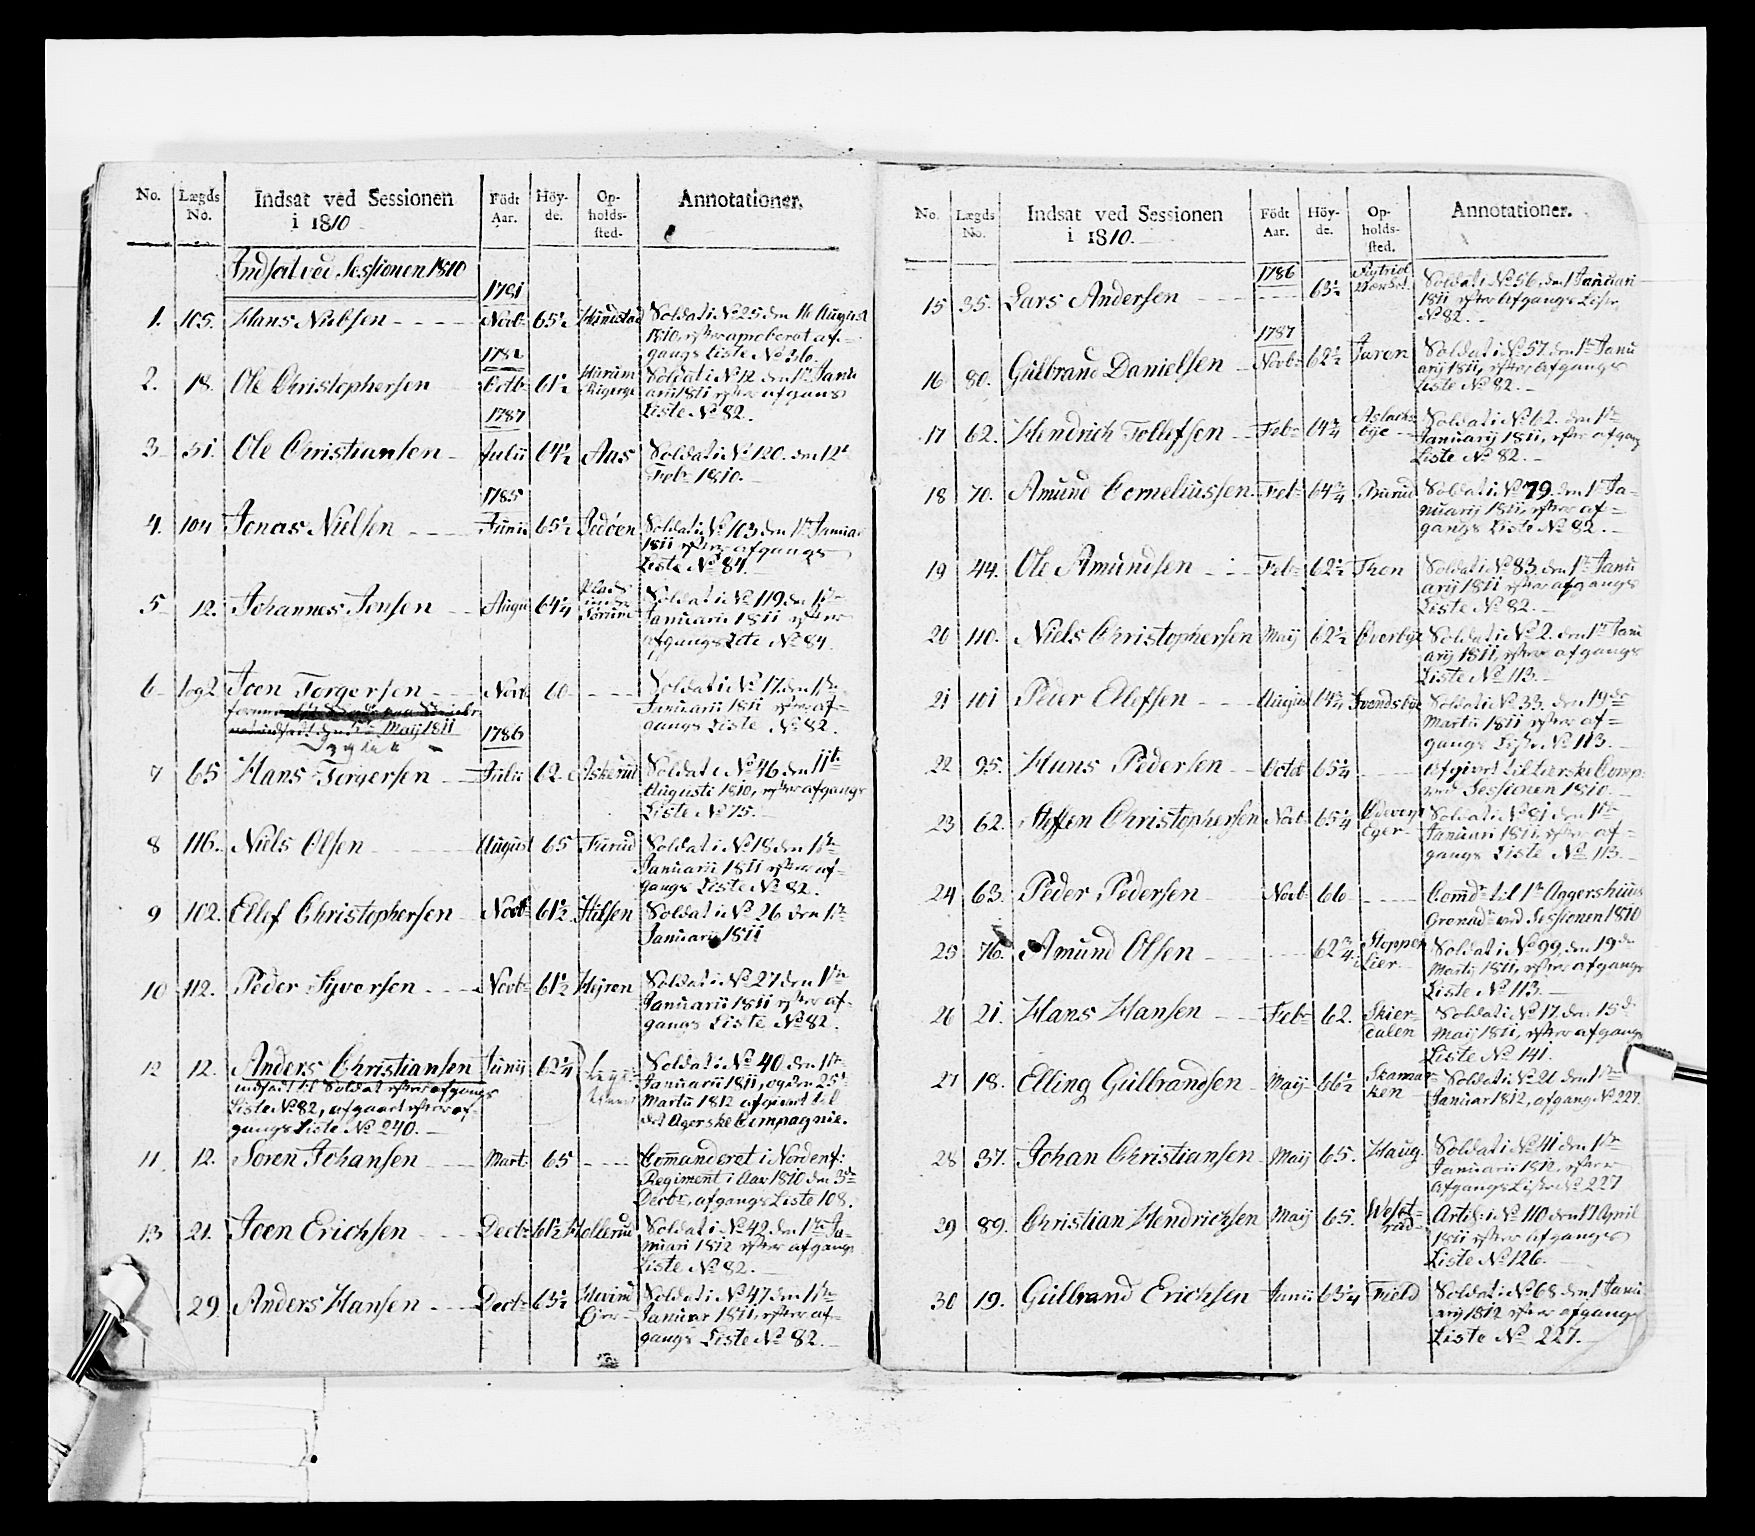 No. Lægds No. Indsat ved Sessionen i 1810 Födt Aar. Höy-de. Op-holds-sted. Annotationer.
Indsat ved Sessionen 1810
1781
1. 105. Hans Nielsen Novb: 65½ Soldat i No 25 den 16 August
1810, efter approberet af-
gangs Liste No 36.
178
2. 18. Ole Christophersen Octb: 61½ Soldat i No 12 den 1te Janu
arii 1811 efter afgangs
Liste No 82.
1787
3 51. Ole Christiansen Julii 64½ Aas Soldat i No 120. den 12te
Feb: 1810.
1785
4. 104 Jonas Nielsen Junii 65½ Soldat i No 103 den 1te Januar
1811 efter afgangs
Liste No 84.
5 12. Johannes Jensen Augu 64¼ Plads under Soldat i No 119. den 1te
Januarii 1811 efter
afgangs Lste No 84.
6 Joen Torgersen Novb: 60 Soldat i No 17. den 1te
Januarii 1811 efter af-
gangs Liste No 82.
Maij 1811
1786
7 65 Hans Torgersen Julii 62. Askerud Soldat i No 46 den 11te
Augusti 1810, efter afgangs
Liste No 75.
8 116. Niels Olsen August 65 Furud Soldat i No 18 den 1te
Januarii 1811 efter af-
gangs Liste No 82.
9 102. Ellef Christophersen Novb: 61½ Hilsen Soldat i No 26 den 1te
Januarij 1811
10 112. Peder Syversen Novb: 61½ Hijren Soldat i No 27 den 1te
Januarii 1811 efter af-
gangs Liste No 82.
12 12. Anders Christiansen Junij 62¼ Soldat i No 40 den 1te
indsadt til Soldat efter afgangs Januarii 1811, og den 25te
Liste No 82, afgaaet efter af- Martii 1812 afgivet til
gangs Liste No 240. det Egerske Compagnie.
11. 12. Soren Johansen Mart: 65 Commanderet i Nordenf:
Regiment i Aar 1810 den 3de
Decbr, afgangs Liste 108.
13 21. Joen Erichsen Decb: 61½ Hollerud Soldat i No 42. den 1te Ja-
nuari 1812 efter afgangs
Liste No 82.
29 Anders Hansen Decb: 63½ Soldat i No 47 den 1te
Januar 1811, efter af-
gangs Liste No 82.
No. Lægds No. Indsat ved Sessionen i 1810. Födt Aar. Höy-de. Op-holds-sted. Annotationer.
1786
15 35. Lars Andersen 63½ Soldat i No 56. den 1 Januari
1811 efter Afgangs Liste
No 82.
1787
16 80. Gulbrand Danielsen Novb: 62½ Jaren Soldat i No 57. den 1te Janu
arij 1811, efter Afgangs
Liste No 82.
17 62. Hendrich Tollefsen Feb: 64¾ Aslachs-bye Soldat i No 62. den 1te
Januarij 1811, efter afgang
Liste No 82.
18 70. Amund Corneliussen Feb: 64¾ Burud Soldat i No 79. den 1te Ja-
nuarij 1811, efter af-
gangs Liste No 82.
19 44. Ole Amundsen Feb: 62½ Thon Soldat i No 83. den 1te Janu
arij 1811 efter afgangs
Liste No 82.
20 110. Niels Christophersen Maij 62½ Overbye Soldat i No 2. den 1te Janu
arij 1811, efter afgangs
Liste No 113.
21 101 Peder Ellefsen August Svendsbye Soldat i No 33. den 19de
Martii 1811 efter af-
gangs Liste No 113.
22 95. Hans Pedersen Octob 65¼ Afgivet til Lierske Comp:
ved Sessionen 1810.
23 62. Steffen Christophersen Novb: 65¼ Soldat i No 81 den 1te
Januari 1811. efter af-
gangs Liste No 113.
24 63. Peder Pedersen Novb: 66 Comd: til 1te Aggershuus
Grenad: ved Sessionen 1810
25 76. Amund Olsen 62¾ Stoppen Lier Soldat i No 99, den 19de
Martij 1811, efter afgangs
Liste No 113.
26 21. Hans Hansen Feb: 62. Skier-dalen Soldat i No 17. den 15de
Maij 1811, efter afgangs
Liste No 141.
27 18. Elling Gulbrandsen Maij 66½ Skamar-ken Soldat i No 21 den 1te
Januar 1812, afgang No 227.
28 37. Johan Christiansen Maij 65. Haug. Soldat i No 41 den 1te
Januarii 1812, efter
Afgangs Liste No 227
29 89. Christian Hendrichsen Maij 65. West-rud Artil: i No 110 den 17 April
1811 efter afgangs
Liste No 126.
30 19. Gulbrand Erichsen Junii 63¼ Field Soldat i No 68 den 1 Janu
arij 1812 efter afgangs
Liste No 227.